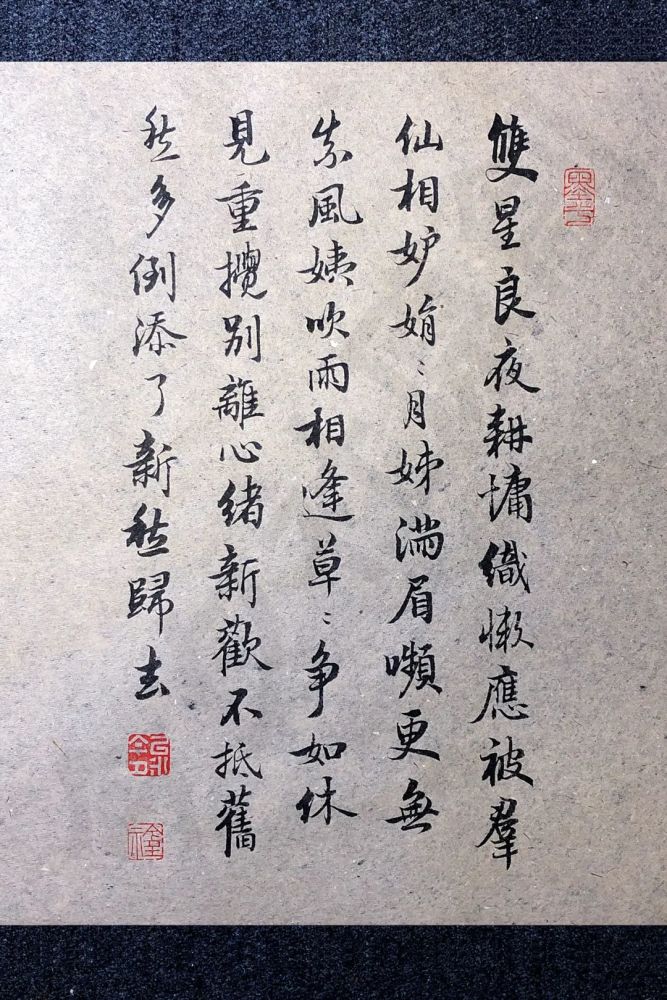 雙星良夜耕慵織懶應被羣
仙相妒娟〻月姊滿眉嚬更無
柰風姨吹雨相逢草〻争如休
見重攪别離心緒新歡不抵舊
愁多倒添了新愁歸去